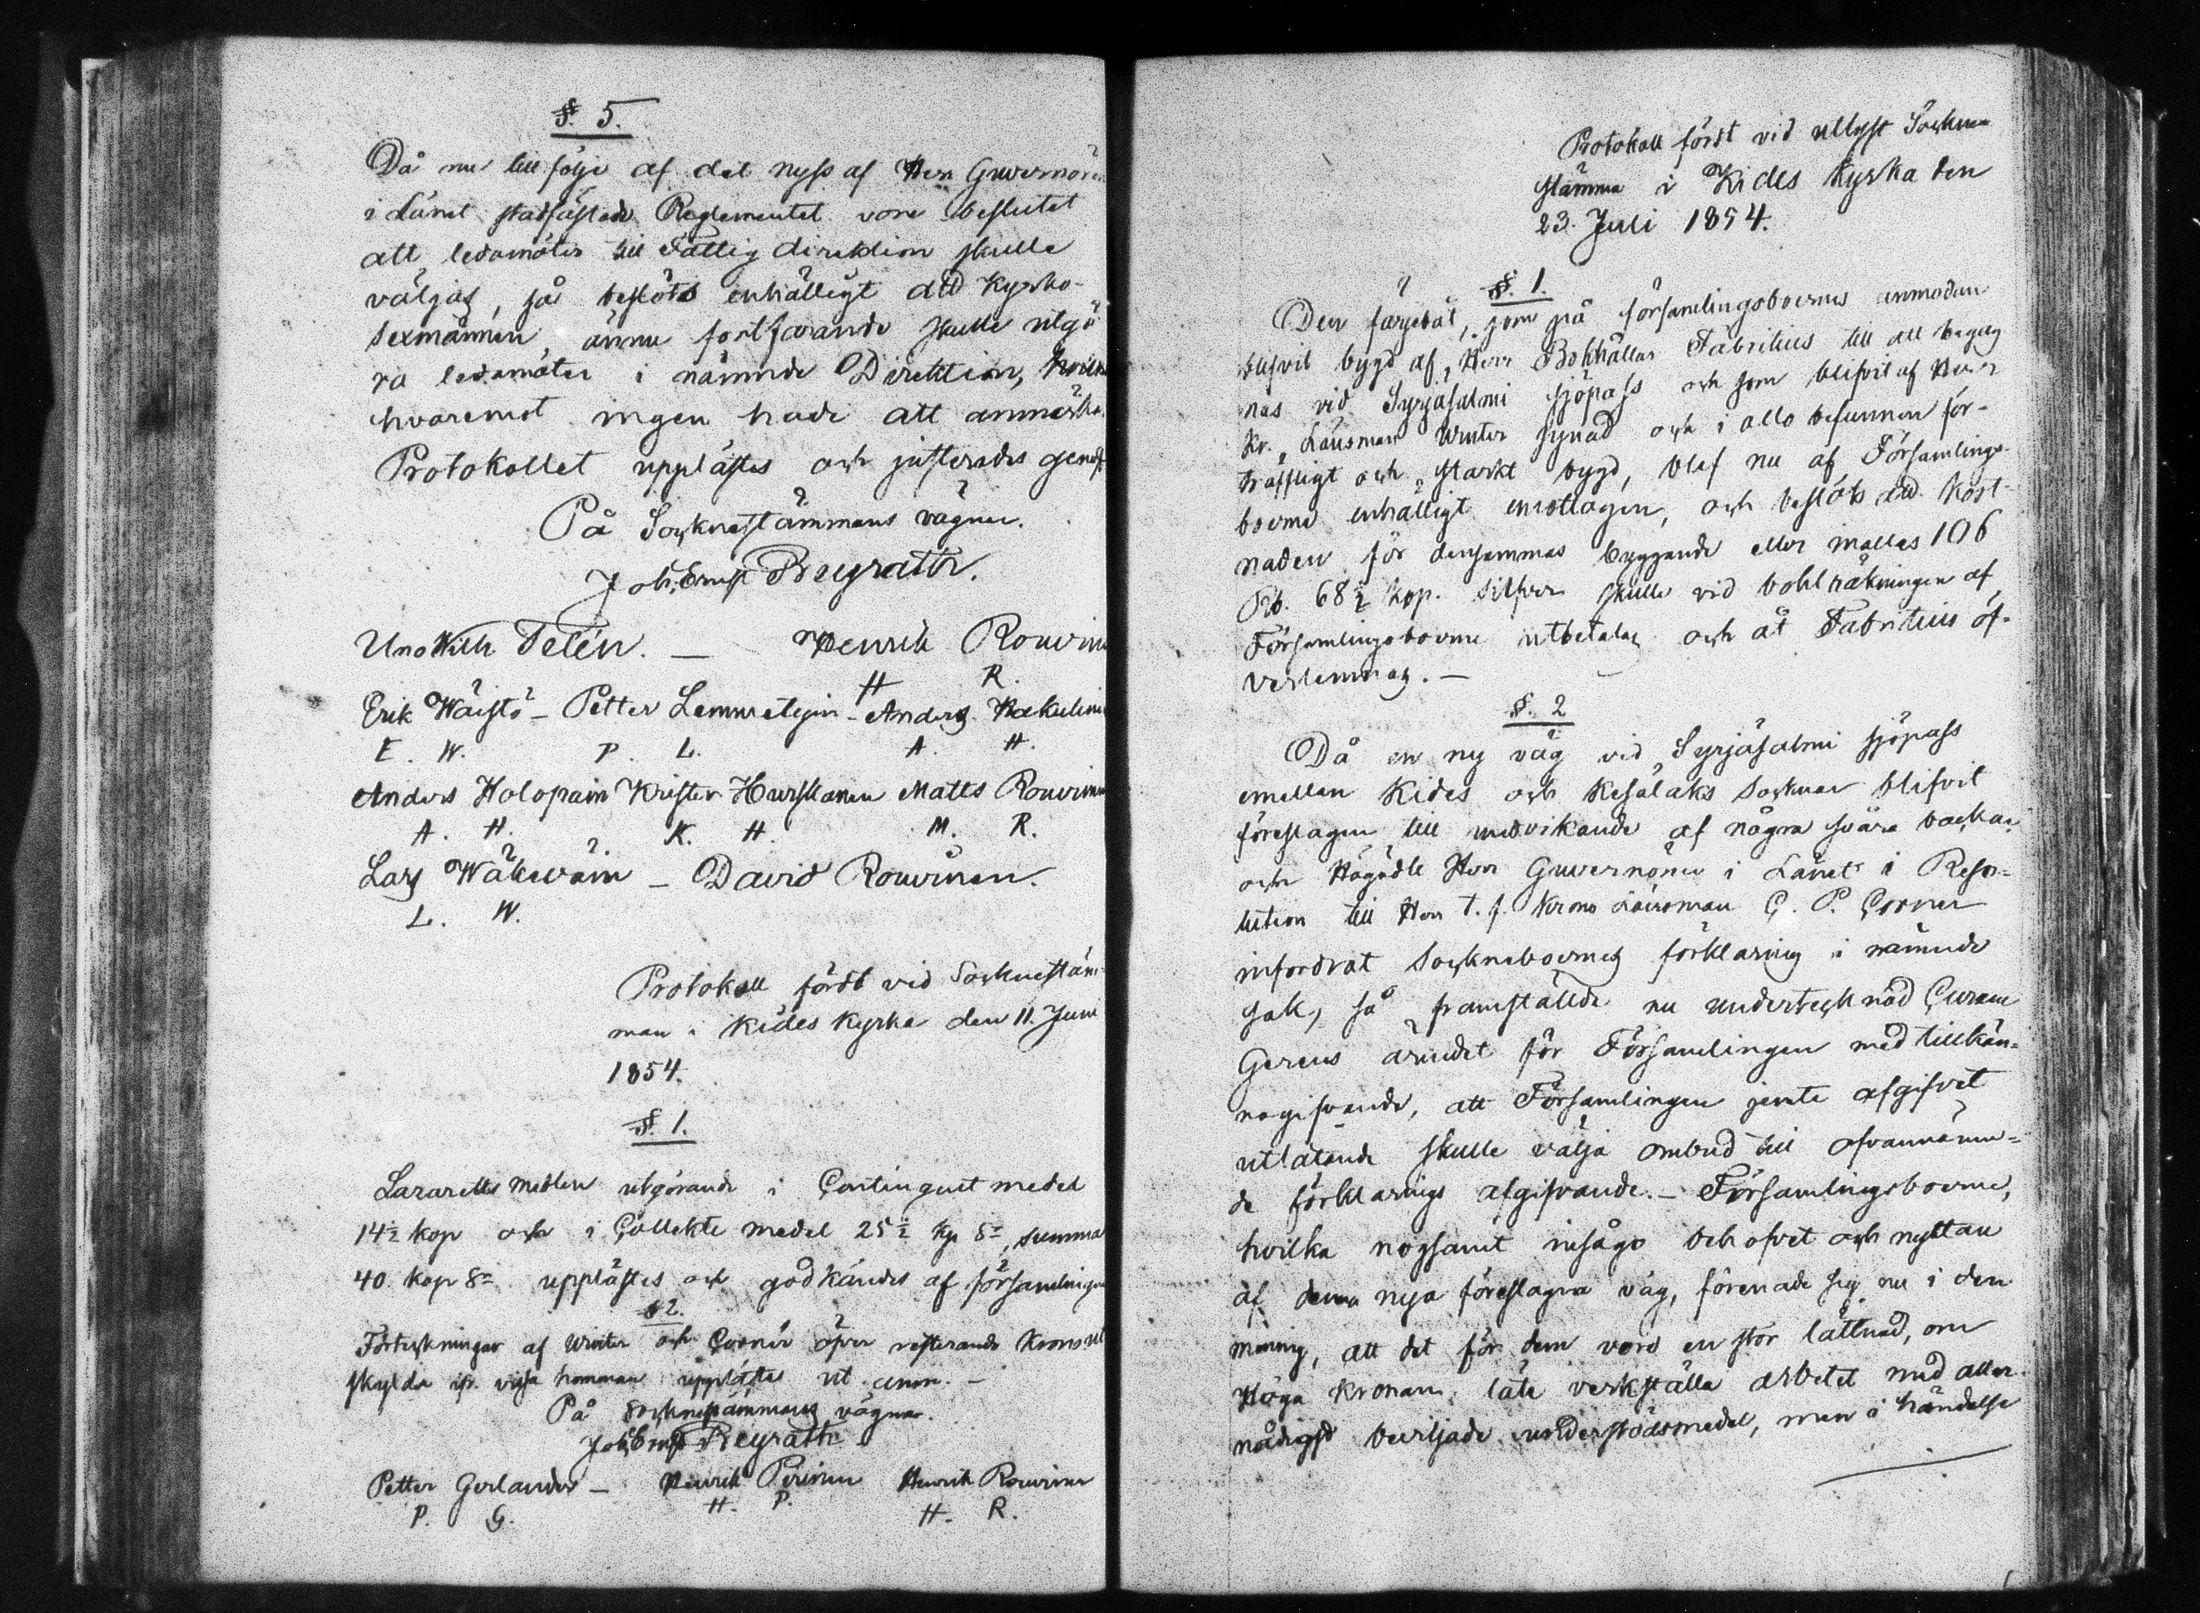 §. 5.
Då nu till följe af det nyss af Herr Guvernören
i Länet stadfästade Reglementet vore beslutet
att ledamöter till Fattig direktion skulle
väljas, så beslöts enhälligt att Kyrko-
sexmännen ännu fortfarande skulle utgö
ra ledamöter i nämnde Direktion,
hvaremot ingen hade att anmärka.
Protokollet upplästes och justerades genast
På Socknestämmans vägnar.
Joh. Ernst
Uno Telén. — Henrik Rouvinen
H R.
Erik Wäistö – Petter – Anders
E. W. P. L. A. H.
Anders Holopain Krister Hurskanen Matts Rouvinen
A. H. K. H. M. R.
Lars Wäkeväin – David Rouvinen.
L. W.
Protokoll fördt vid Sockneståm-
man i Kides Kyrka den 11. Juni
1854.
§. 1.
Lazaretts medlen utgörande i Contingent medel
14½ kop och i Collekte medel 25½ kp Sr, summa
40. kop Sr upplästes och godkändes af församlingen
§ 2.
Förteckningar af Winter och Corner öfver resterande Krono
skylder upplästes ut. anm. –
På Socknestämmans vägnar.
Joh. Ernst
Petter Gerlander – Henrik Henrik Rouvinen
P. G. H. P. H. R.
Protokoll fördt vid utlyst Sockne
stämma i Kides Kyrka den
23. Juli 1854.
§. 1.
Den färjebåt, som på församlingsboernes anmodan
blifvit bygd af Herr Bokhållar Fabritius till att begag
nas vid Syrjäsalmi sjöpass och som blifvit af Herr
Kr. Länsman Winter synad och i allo befunnen för-
träffligt och starkt bygd, blef nu af Församlings-
boerne enhälligt emottagen, och beslöts att kost-
naden för densammas byggande eller 106
Rb. 68½ kop. silfver skulle vid bohlräkningen af
Församlingsboerne utbetalas och åt Fabritius öf-
verlemnas. –
§. 2
Då en ny väg vid Syrjäsalmi sjöpass
emellan Kides och Kesälaks Socknar blifvit
föreslagen till undvikande af några svåra backar
och Högädle Herr Guvernören i Länet i Reso-
lution till Herr T. f. Krono Länsman C. P. Corner
infordrat Sockneboernes förklaring i nämnde
sak, så framställde nu undertecknad Curam
Gerens ärendet för Församlingen med tillkän-
nagifvande, att Församlingen jemte afgifvet
utlåtande skulle välja ombud till ofvannämn-
de förklarings afgifvande. – Församlingsboerne,
hvilka nogsamt insågo behofvet och nyttan
af denna nya föreslagna väg, förenade sig nu i den
mening, att det för dem vore en stor lättnad, om
Höga Kronan läte verkställa arbetet med aller-
nådigst beviljade understödsmedel, men i händelse